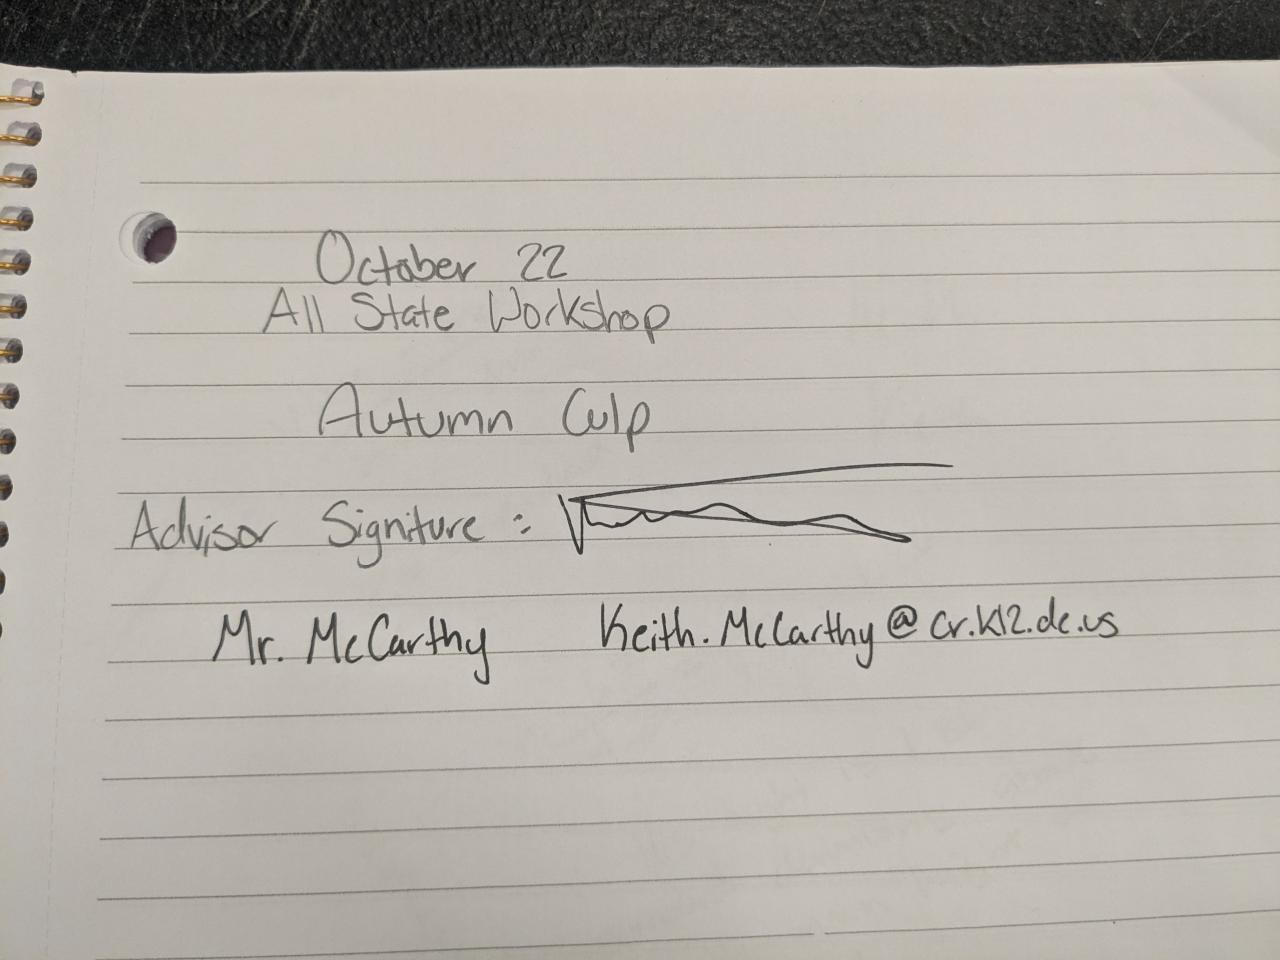 October 22
All State Workshop
Autumn Culp
Advisor Signiture :
Mr. McCarthy Keith.McCarthy@cr.k12.de.us